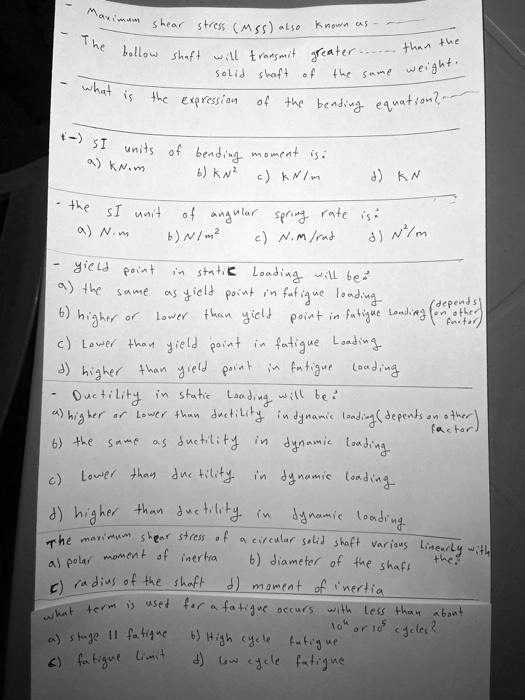 - Maximum shear stress (MSS) also known as - ------
- The hollow shaft will transmit greater ------- than the
solid shaft of the same weight.
- what is the expression of the bending equation? ----
t-) SI units of bending moment is:
a) kN.m b) kN² c) kN/m d) kN
- the SI unit of angular spring rate is:
a) N.m b) N/m² c) N.m/rad d) N²/m
- yield point in static Loading will be:
a) the same as yield point in fatigue loading
b) higher or Lower than yield point in fatigue Loading (depends on other factor)
c) Lower than yield point in fatigue Loading
d) higher than yield point in fatigue loading
- Ductility in static Loading will be:
a) higher or Lower than ductility in dynamic loading (depends on other factor)
b) the same as ductility in dynamic loading
c) Lower than ductility in dynamic loading
d) higher than ductility in dynamic loading
The maximum shear stress of a circular solid shaft various Linearly with the:
a) polar moment of inertia b) diameter of the shaft
c) radius of the shaft d) moment of inertia
what term is used for a fatigue occurs with less than about
10⁴ or 10⁵ cycles?
a) stage II fatigue b) High cycle fatigue
c) fatigue limit d) low cycle fatigue